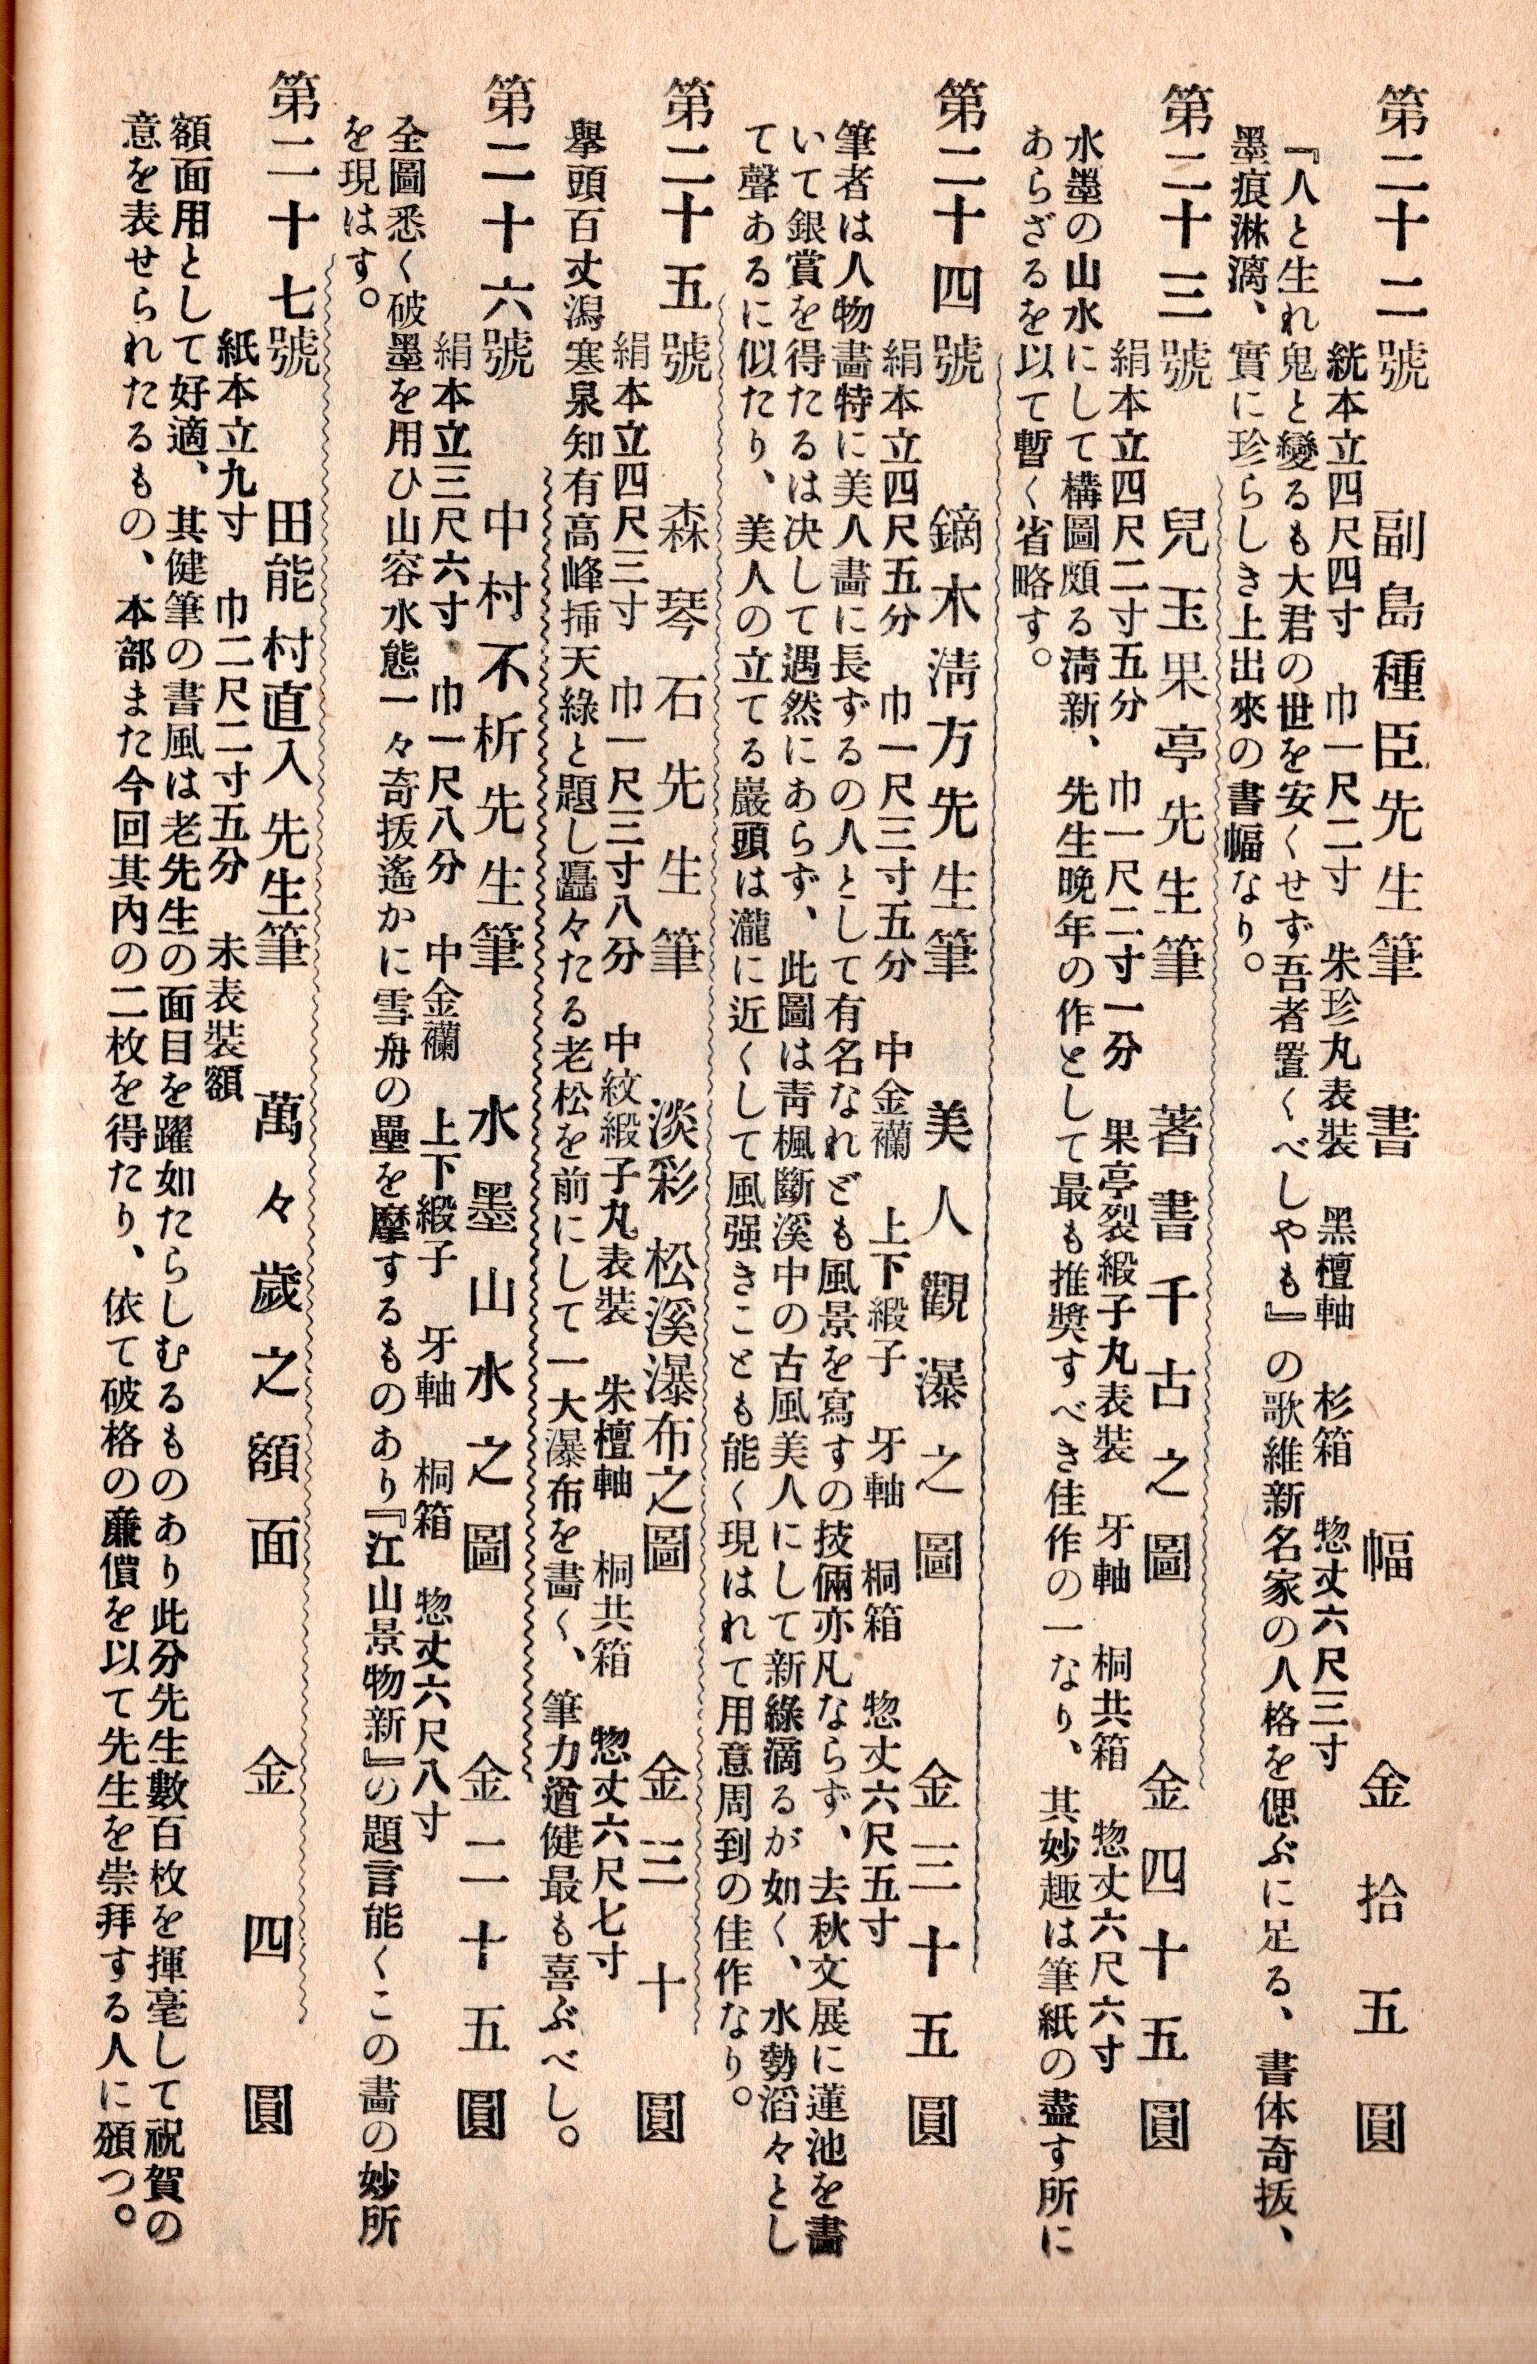 第二十二號 副島種臣先生筆 書幅 金拾五圓
絖本立四尺四寸 巾一尺二寸 朱珍丸表裝 黑檀軸 杉箱 惣丈六尺三寸
『人と生れ鬼と變るも大君の世を安くせず吾者置くべしやも』の歌維新名家の人格を偲ぶに足る、書体奇拔、
墨痕淋漓、實に珍らしき上出來の書幅なり。
第二十三號 兒玉果亭先生筆 著書千古之圖 金四十五圓
絹本立四尺二寸五分 巾一尺二寸一分 果亭裂緞子丸表裝 牙軸 桐共箱 惣丈六尺六寸
水墨の山水にして構圖頗る淸新、先生晚年の作として最も推奬すべき佳作の一なり、其妙趣は筆紙の盡す所に
あらざるを以て暫く省略す。
第二十四號 鏑木淸方先生筆 美人觀瀑之圖 金三十五圓
絹本立四尺五分 巾一尺三寸五分 中金襴 上下緞子 牙軸 桐箱 惣丈六尺五寸
筆者は人物畵特に美人畵に長ずるの人として有名なれども風景を寫すの技倆亦凡ならず、去秋文展に蓮池を畵
いて銀賞を得たるは决して遇然にあらず、此圖は靑楓斷溪中の古風美人にして新綠滴るが如く、水勢滔々とし
て聲あるに似たり、美人の立てる巖頭は瀧に近くして風强きことも能く現はれて用意周到の佳作なり。
第二十五號 森琴石先生筆 淡彩松溪瀑布之圖 金三十圓
絹本立四尺三寸 巾一尺三寸八分 中紋緞子丸表裝 朱檀軸 桐共箱 惣丈六尺七寸
擧頭百丈瀉寒泉知有高峰揷天綠と題し矗々たる老松を前にして一大瀑布を畵く、筆力遒健最も喜ぶべし。
第二十六號 中村不折先生筆 水墨山水之圖 金二十五圓
絹本立三尺六寸 巾一尺八分 中金襴 上下緞子 牙軸 桐箱 惣丈六尺八寸
全圖悉く破墨を用ひ山容水態一々奇拔遙かに雪舟の壘を摩するものあり『江山景物新』の題言能くこの畵の妙所
を現はす。
第二十七號 田能村直入先生筆 萬々歲之額面 金四圓
紙本立九寸 巾二尺二寸五分 未表裝額
額面用として好適、其健筆の書風は老先生の面目を躍如たらしむるものあり此分先生數百枚を揮毫して祝賀の
意を表せられたるもの、本部また今回其內の二枚を得たり、依て破格の亷價を以て先生を崇拜する人に頒つ。